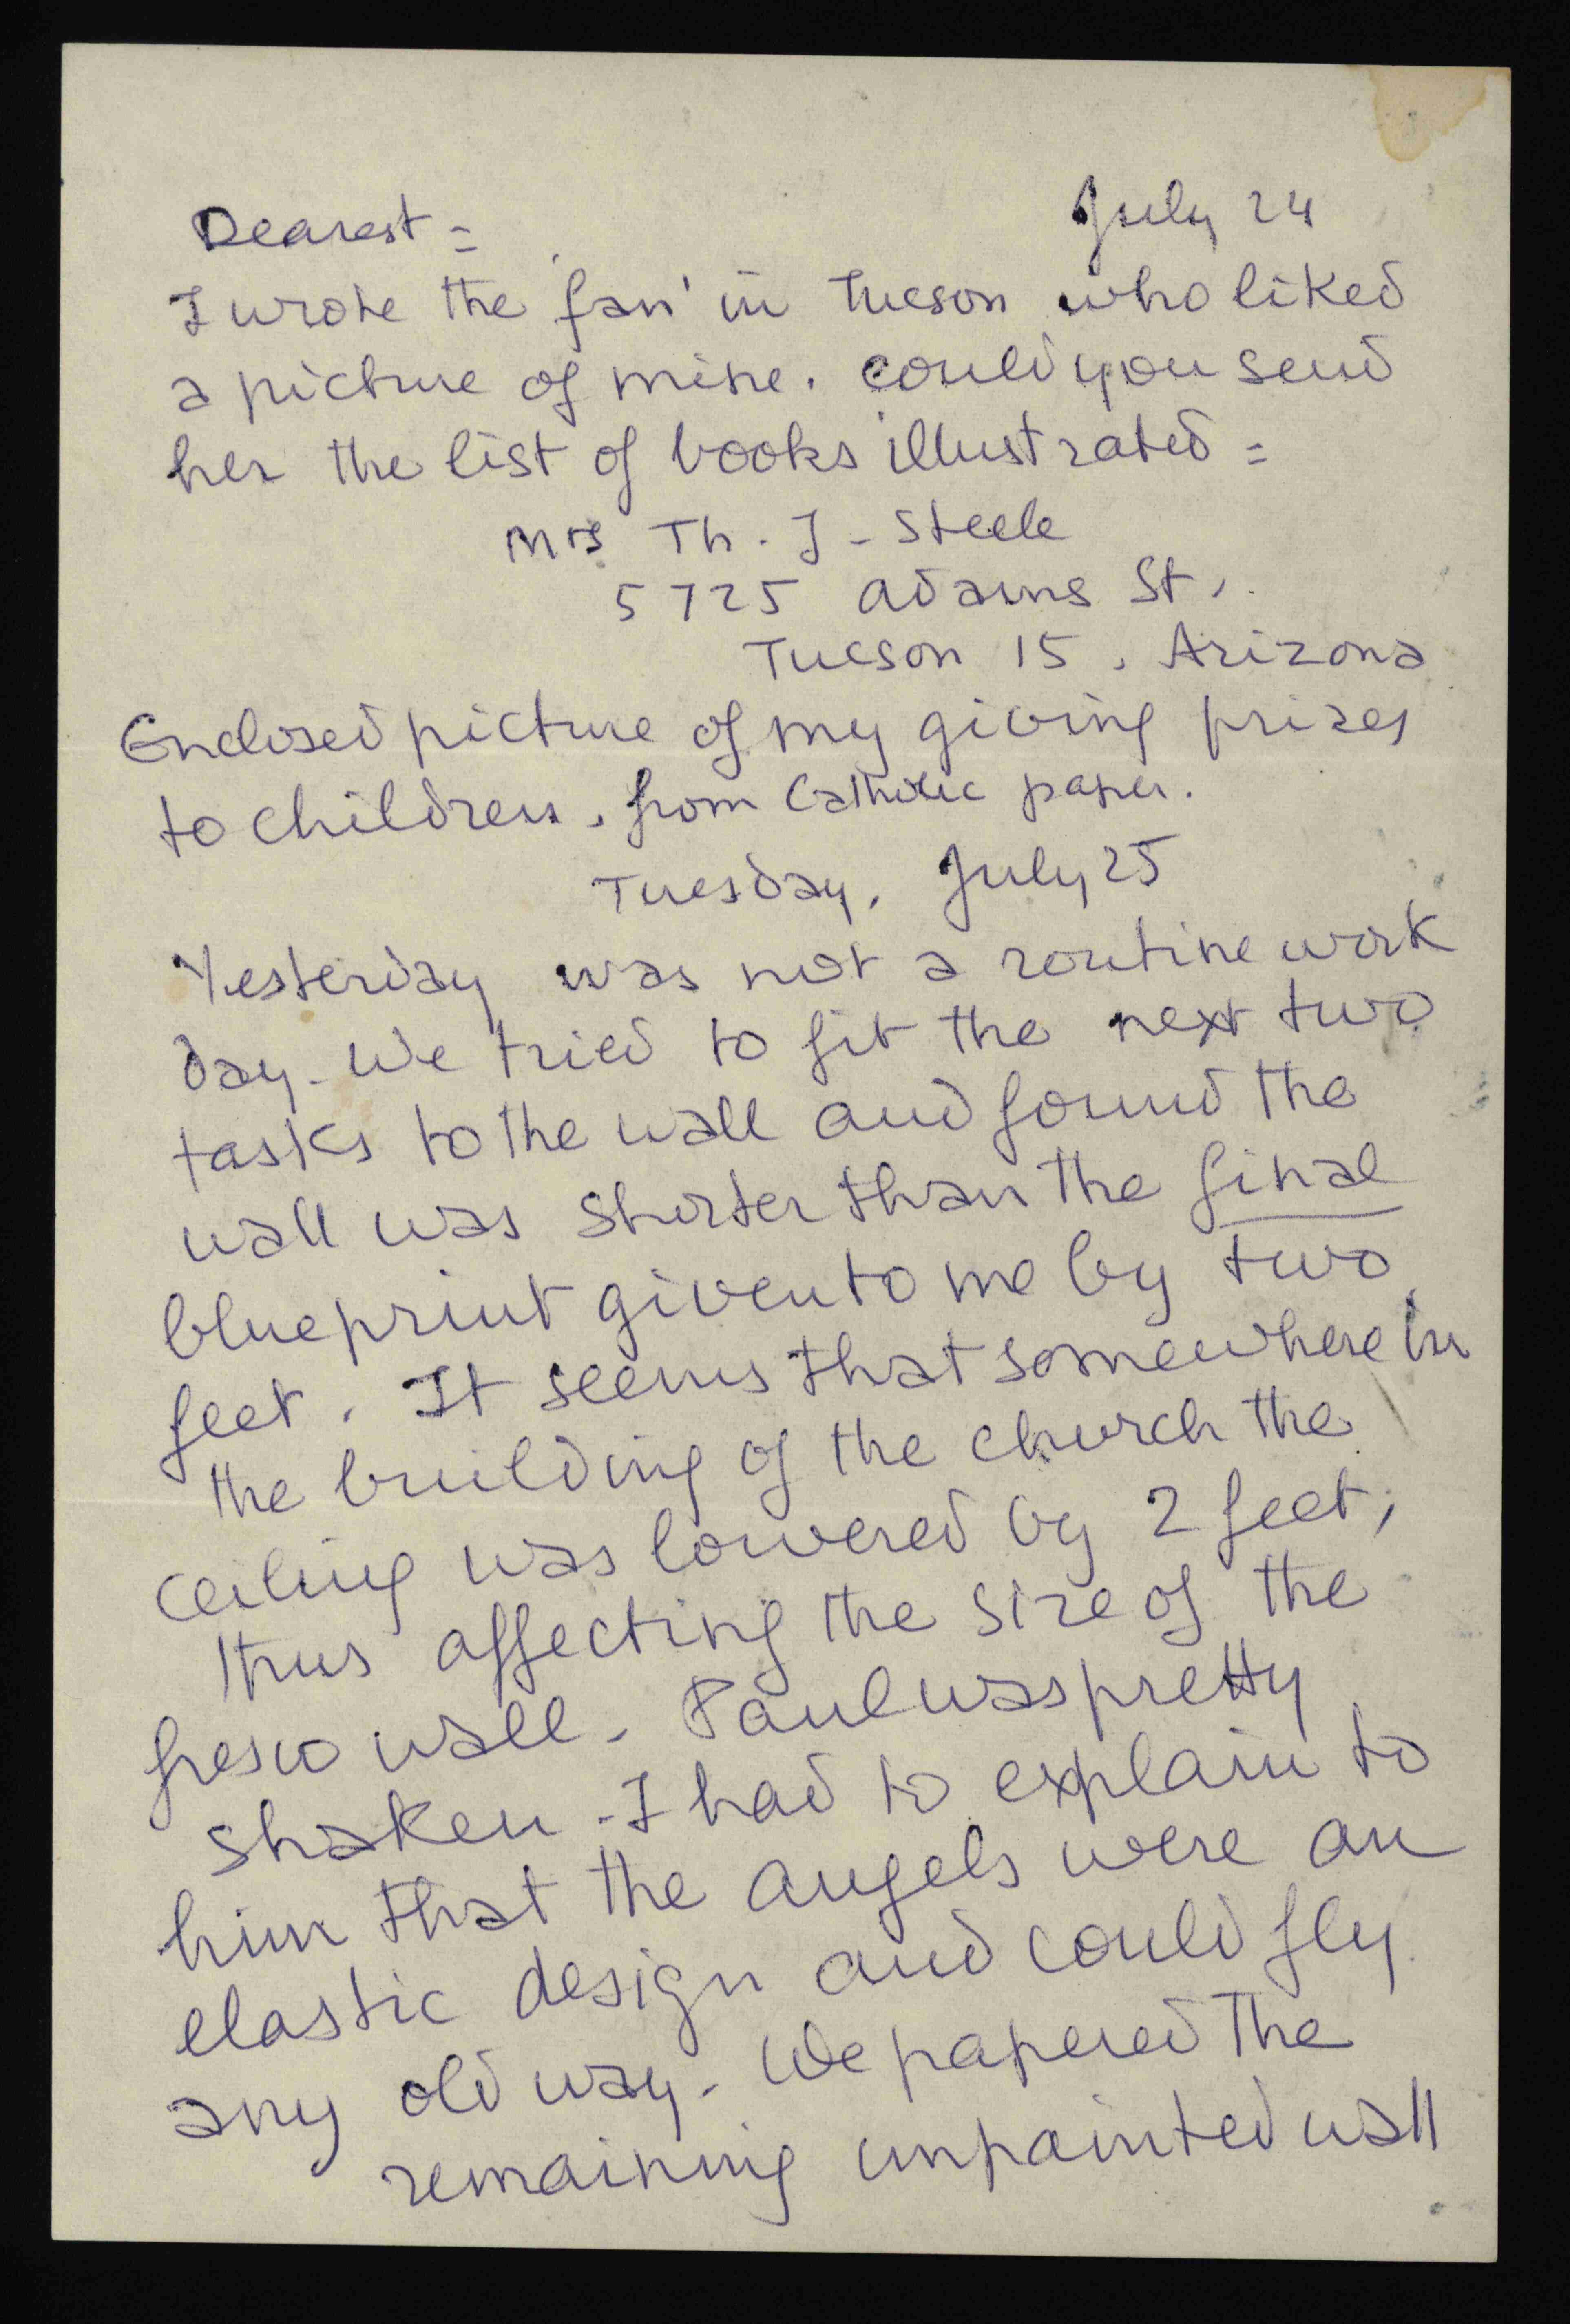 Dearest = July 24
I wrote the 'fan' in Tucson who liked
a picture of mine. Could you send
her the list of books illustrated =
Mrs Th. J - Steele
5725 Adams St.
Tucson 15, Arizona
Enclosed picture of my giving prizes
to children, from Catholic paper.
Tuesday, July 25
Yesterday was not a routine work
day - We tried to fit the next two
tasks to the wall and found the
wall was shorter than the final
blueprint given to me by two
feet. It seems that somewhere in
the building of the church the
ceiling was lowered by 2 feet,
thus affecting the size of the
fresco wall. Paul was pretty
shaken - I had to explain to
him that the angels were an
elastic design and could fly
any old way. We papered the
remaining unpainted wall